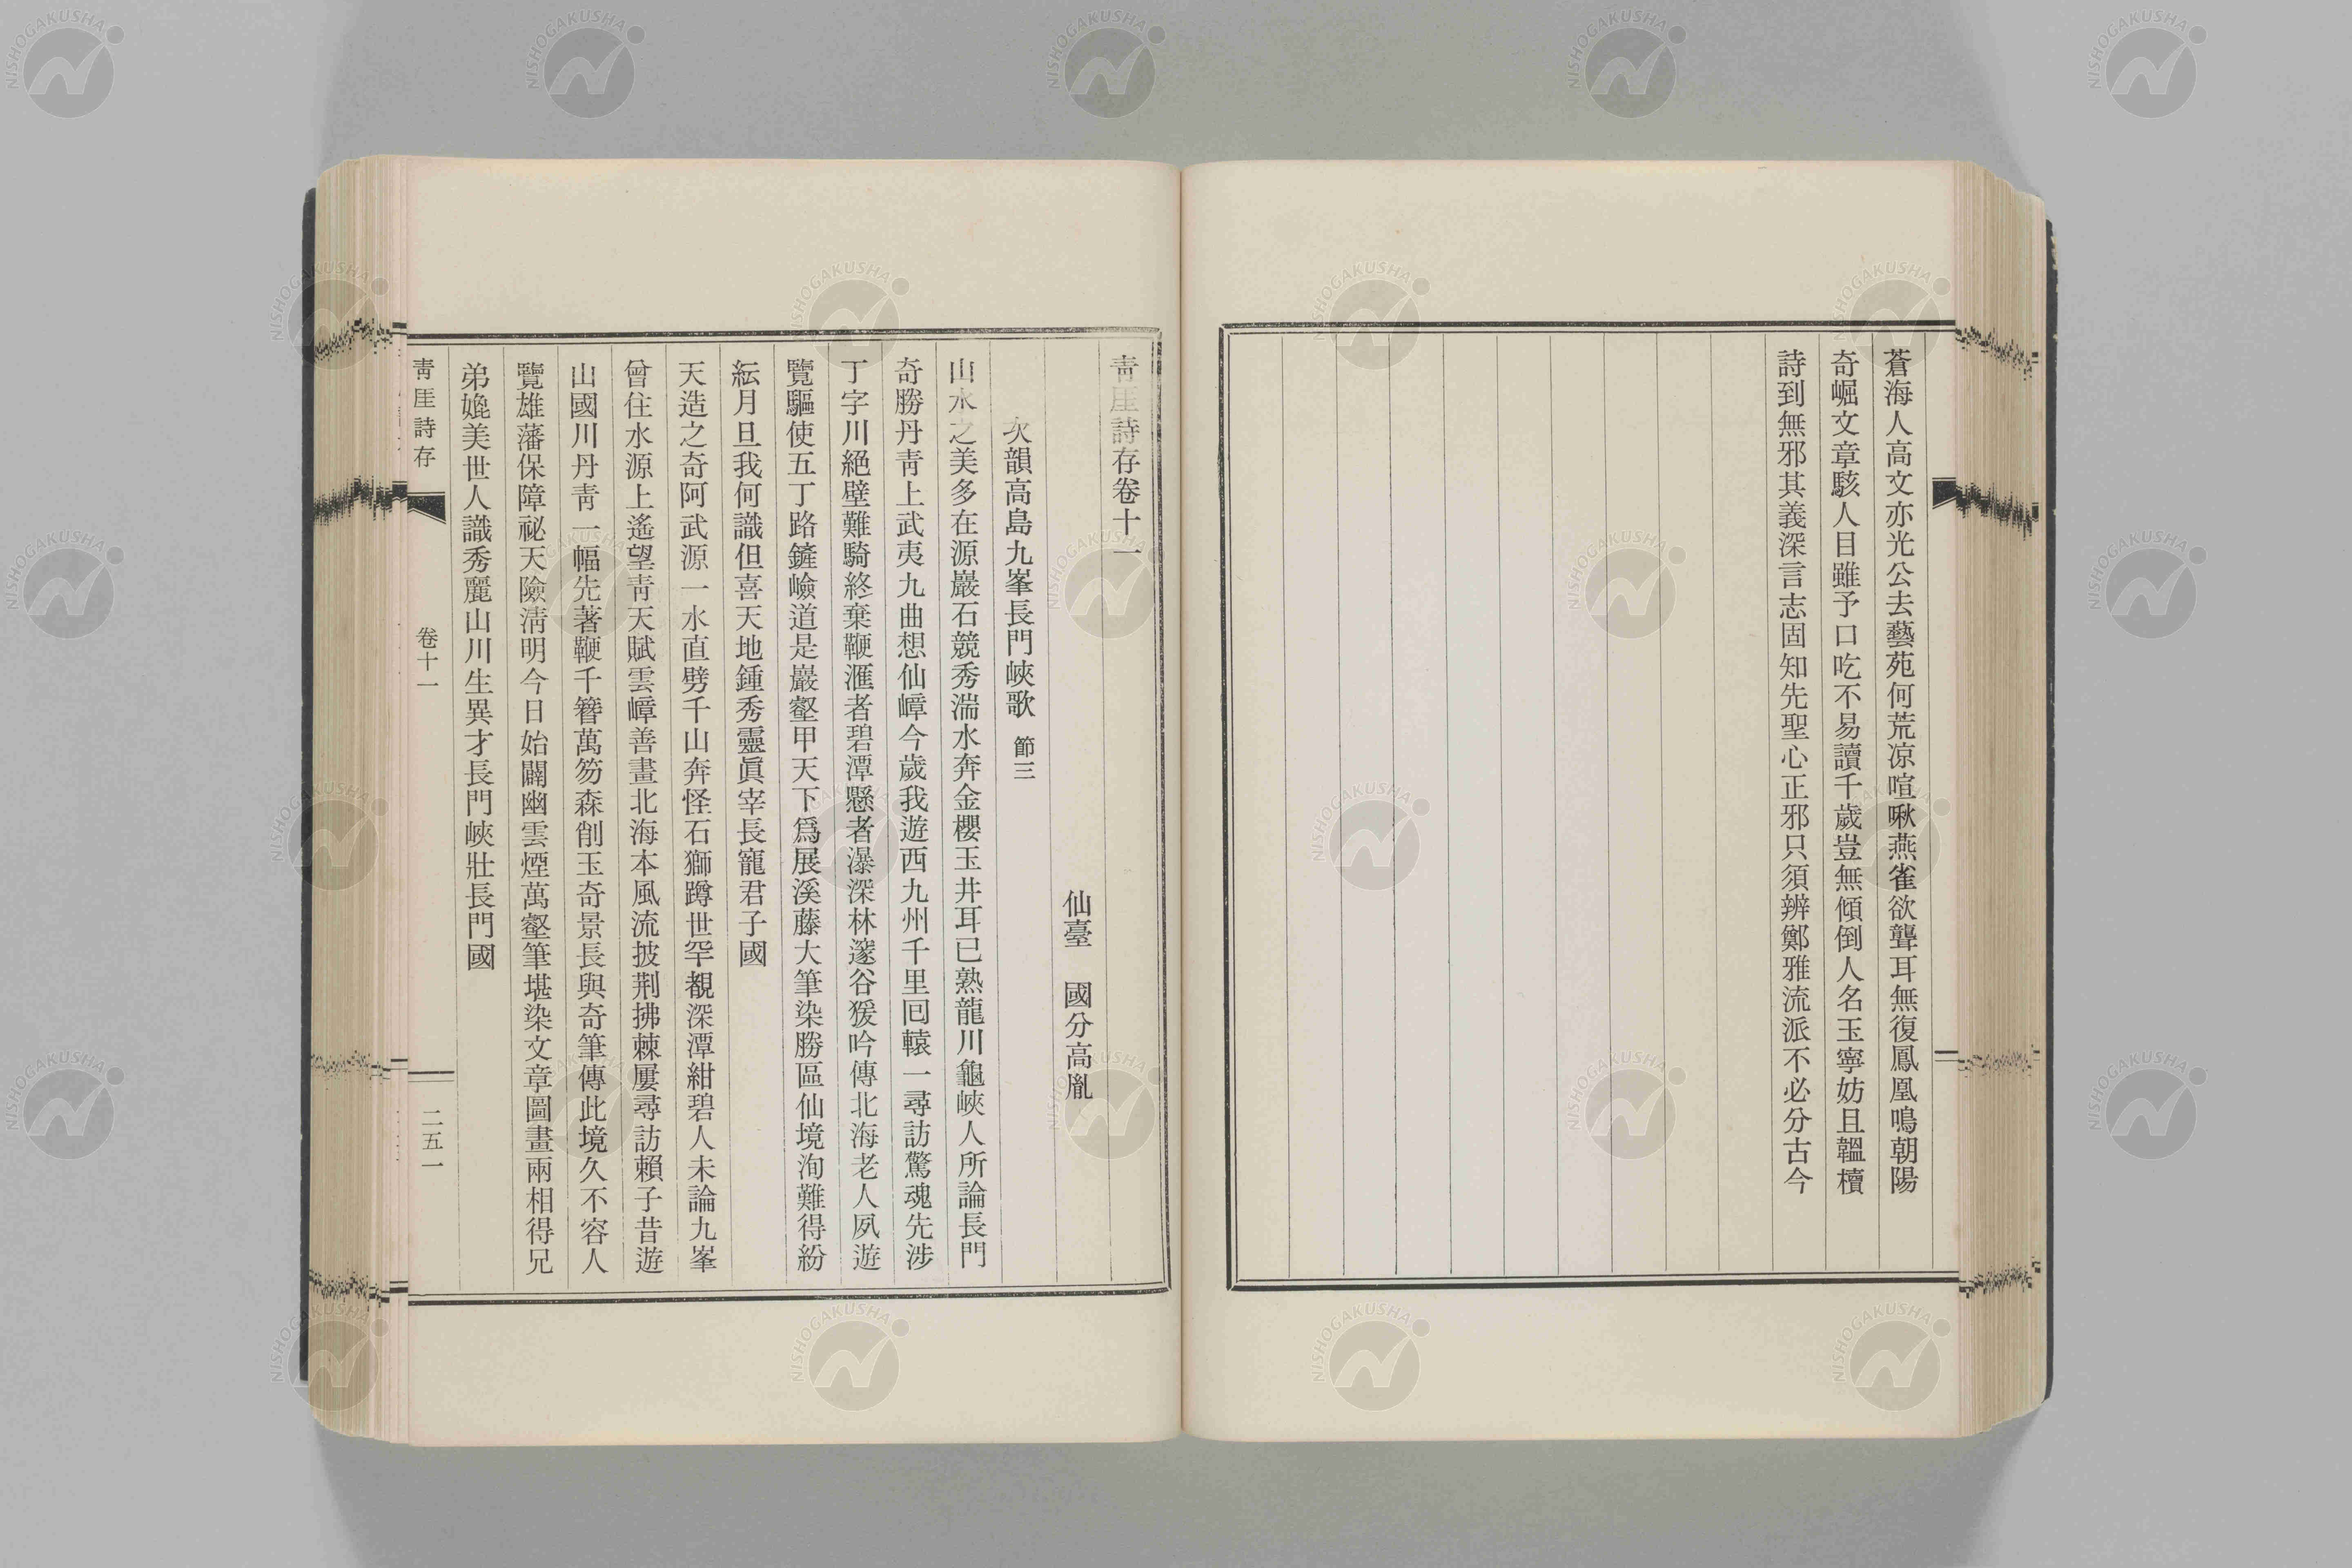 蒼海人高文亦光公去藝苑何荒凉喧啾燕雀欲聾耳無復鳳凰鳴朝陽
奇崛文章駭人目雖予口吃不易讀千歲豈無傾倒人名玉寧妨且韞櫝
詩到無邪其義深言志固知先聖心正邪只須辨鄭雅流派不必分古今
靑厓詩存卷十一
仙臺　國分高胤
次韻高島九峯長門峽歌　節三
山水之美多在源巖石競秀湍水奔金櫻玉井耳已熟龍川龜峽人所論長門
奇勝丹靑上武夷九曲想仙嶂今歲我遊西九州千里回轅一尋訪驚魂先涉
丁字川絕壁難騎終棄鞭滙者碧潭懸者瀑深林邃谷猨吟傳北海老人夙遊
覽驅使五丁路鏟嶮道是巖壑甲天下爲展溪藤大筆染勝區仙境洵難得紛
紜月旦我何識但喜天地鍾秀靈眞宰長寵君子國
天造之奇阿武源一水直劈千山奔怪石獅蹲世罕覩深潭紺碧人未論九峯
曾住水源上遙望靑天賦雲嶂善畫北海本風流披荆拂棘屢尋訪賴子昔遊
山國川丹靑一幅先著鞭千簪萬笏森削玉奇景長與奇筆傳此境久不容人
覽雄藩保障祕天險淸明今日始闢幽雲煙萬壑筆堪染文章圖畫兩相得兄
弟媲美世人識秀麗山川生異才長門峽壯長門國
靑厓詩存
卷十一
二五一
NISHOGAKUSHA